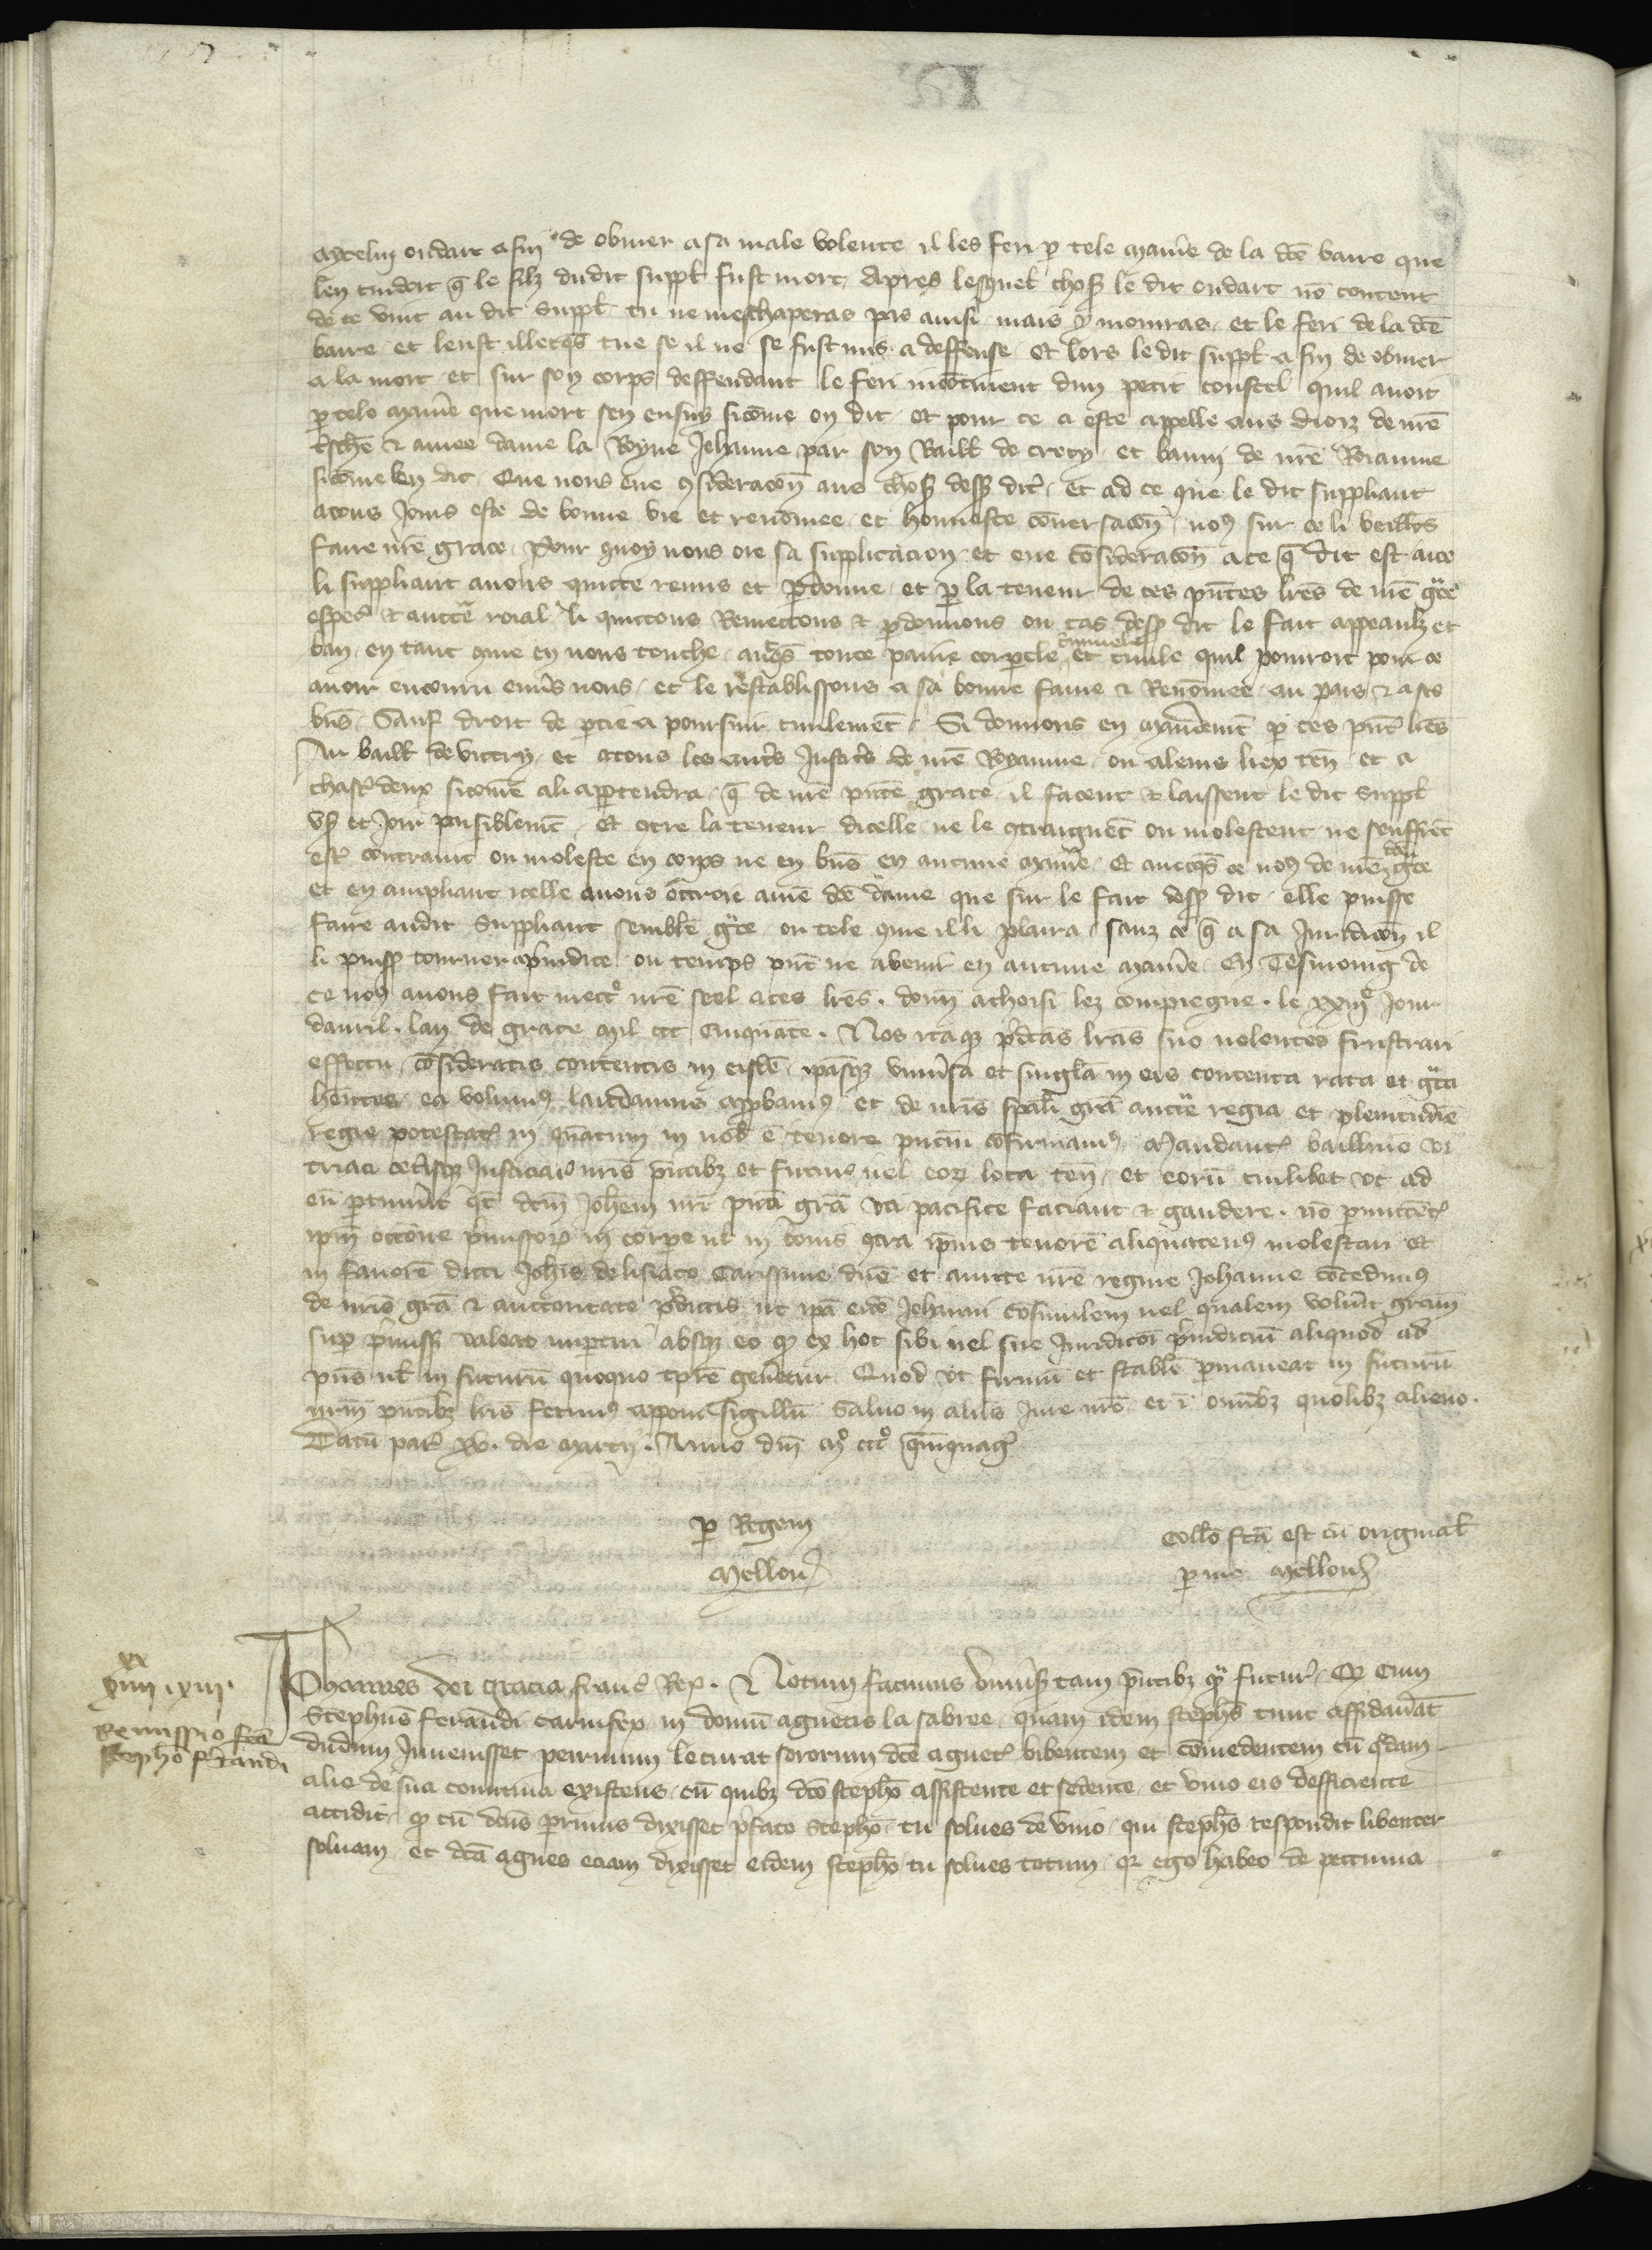 aycelin oudart afin de obuier a sa male volente il les feri p tele maniere de la dce barre que
len cuidoit q le filz dudit suppl fust mort Apres lesquel choses le dit oudart no content
de ce vint au dit suppl tu ne meschaperas pas ainsi mais y mourras et le feri de la dce
barre et leust illecqs tue se il ne se fust mis a deffense Et lors le dit suppl a fin de obuier
a la mort et sur son corps deffendant le feri incotinent dun petit coustel quil auoit
p tele maniere que mort sen ensui sicome on dit et pour ce a este appelle aus diorz de nre
tsche & amee dame la Royne Jehanne par son Baill de crecy et banni de nre Roiaume
sicome len dit Que nous eue 9sideracon aus choses dess dites et ad ce que le dit suppliant
a tous jours este de bonne vie et renomee et honneste conuersacon no9 sur ce li veillons
faire nre grace Pour quoy nous oie sa supplicacion et eue cosideracon a ce q dit est aice
li suppliant auons quicte remis et pdonne et p la teneur de ces pntes lres de nre gce
especl & auctte roial li quictons Remectons & pdonnons ou cas dess dit le fait appeaulz et
ban en tant 9me en nous touche auecqs toute paine corpele criminele et ciuile quil pourroit pour ce
auoir encouru enuers nous et le restablissons a sa bonne fame & Renomee au pais & a ses
bns Sauf droit de ptie a poursuir ciuilement Si donnons en mandemt p ces pntes lres
Au baill de victry et a tous les autres Justices de nre Royaume ou a leurs liex ten et a
chascun deux sicome a li appertendra q de nre pnte grace il facent & laissent le dit suppl
vser et joir paisiblemt Et otre la teneur dicelle ne le 9traignet ou molestent ne seuffret
estre contraint ou moleste en corps ne en bns en aucune maniere Et auecqs ce no9 de nre dce gce
et en ampliant icelle auons octroie a nre dce dame que sur le fait dess dit elle puisse
faire audit suppliant semble gce ou tele 9me il li plaira sanz ce q a sa juridicon il
li puisse tourner a piudice ou temps pnt ne a venir en aucune maniere En Tesmoing de
ce no9 auons fait mectre nre seel a ces lres donn a choisi lez compiegne le xxiiije jour
dauril lan de grace mil ccc cinquante Nos itaqz pdtas lras suo nolentes frustrari
effectu cosideratis contentis in eisde ipasqz vniusa et singla in eis contenta rata et gta
hentes ea volumus laudamus appbamus et de nris spali gra auctte regia et plenitudie
regie potestatis in quatum in nob e tenore pncium cofirmamus Mandantes bailliuo vi
triaci ceterisqz Justiciariis nris pntibz et futuris vel eorz loca ten et eoru cuilibet vt ad
eu ptinuerit qt dcm Johem nra pnti gra vti pacifice faciant & gaudere no pmittetes
ipm occone pmissorum in corpe vl in bonis 9tra ipius tenore aliquatenus molestari Et
in fauore dicti Johis de lisiaco Carissime dne et amicte nre regine Johanne cocedimus
de nris gra & auctoritate pdictis vt ipa eide Johanni cosimilem vel qualem voluit gram
sup pmissis valeat impertiri absqz eo q ex hoc sibi vel sue Juridictoi piudiciu aliquod ad
pns vl in futuru quoquo tpre genetur Quod vt firmu et stable pmaneat in futuru
nrm pntibz lris fecimus apponi sigillu Saluo in aliis Jure nro et i omibz quolibz alieno
Datu paris xv die marcij Anno dni mo ccco quiquagesimo
p Regem
Mellou
Collo fca est cu originali
p me Mellou
xx
iiii xiii
Remissio fca
Stepho ferandi
Johannes dei gracia franc Rex & Notum facimus vniusis tam pntibz q futuris Q Cum
Stephus ferandi carnifex in domu agnetis la sabree quam idem stephs tunc affidauat
dudum Inuenisset perrinum lecurat sororium dce agnetis bibentem et comedentem cu qdam
alio de sua comitiua existens cu quibz dco stepho assistente et sedente et vino eis defficiente
accidit q cu dcus perrinus dixisset pfato Stepho tu solues de vino qui stephs respondit libenter
soluam et dca agnes eciam dixisset eidem stepho tu solues totum qr ego habeo de peccunia